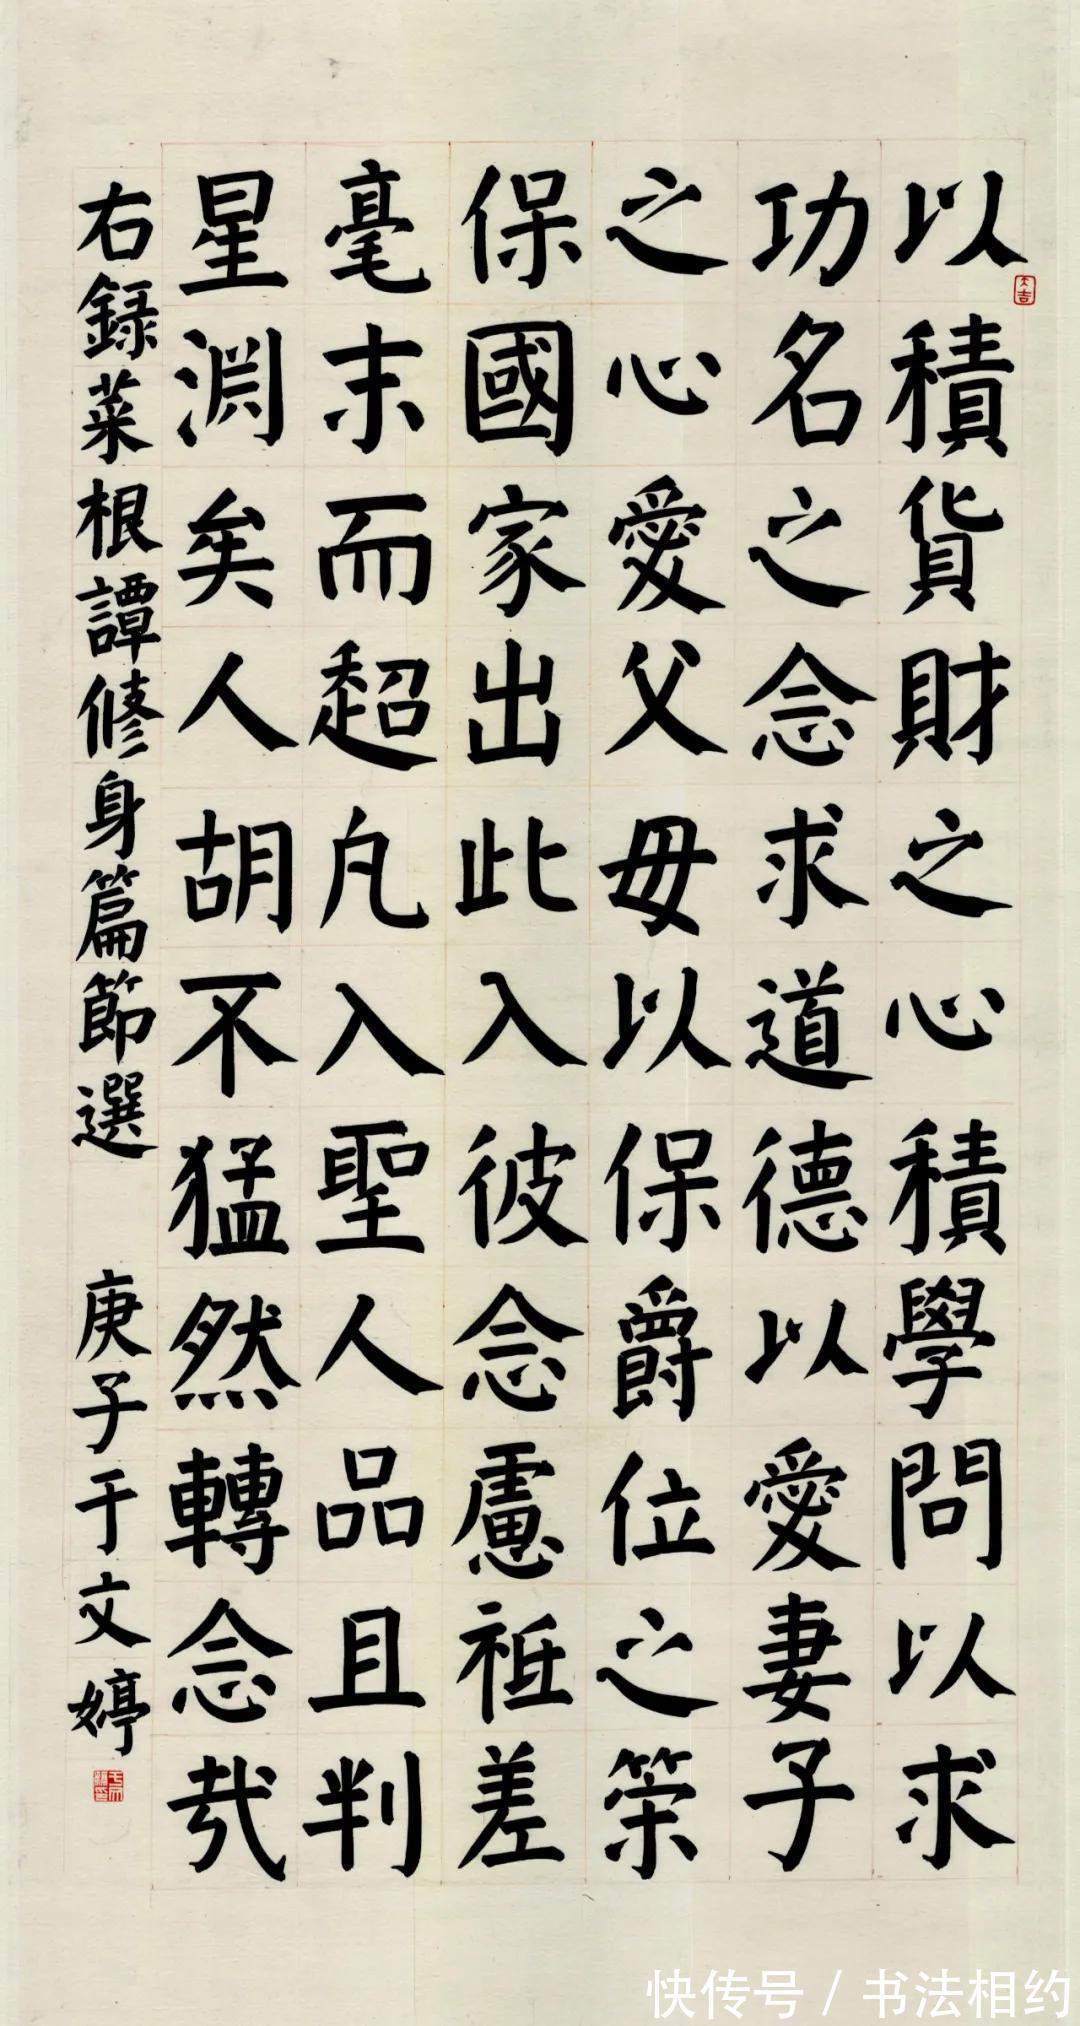 以積貨財之心積學問以求
功名之念求道德以愛妻子
之心愛父母以保爵位之策
保國家出此入彼念慮祇差
毫末而超凡入聖人品且判
星淵矣人胡不猛然轉念哉
右録菜根譚修身篇節選 庚子于文婷
大吉
快传号 / 书法相约